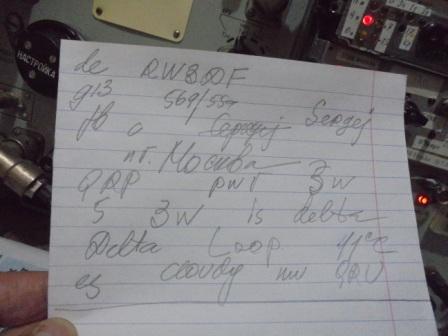 НАСТРОЙКА
de RW3DF
569/55
fb Sergej
Сергей
пт. Москва
QRP pwr 3w
5 3w is delta
Delta Loop 11°C
es cloudy nw QRU